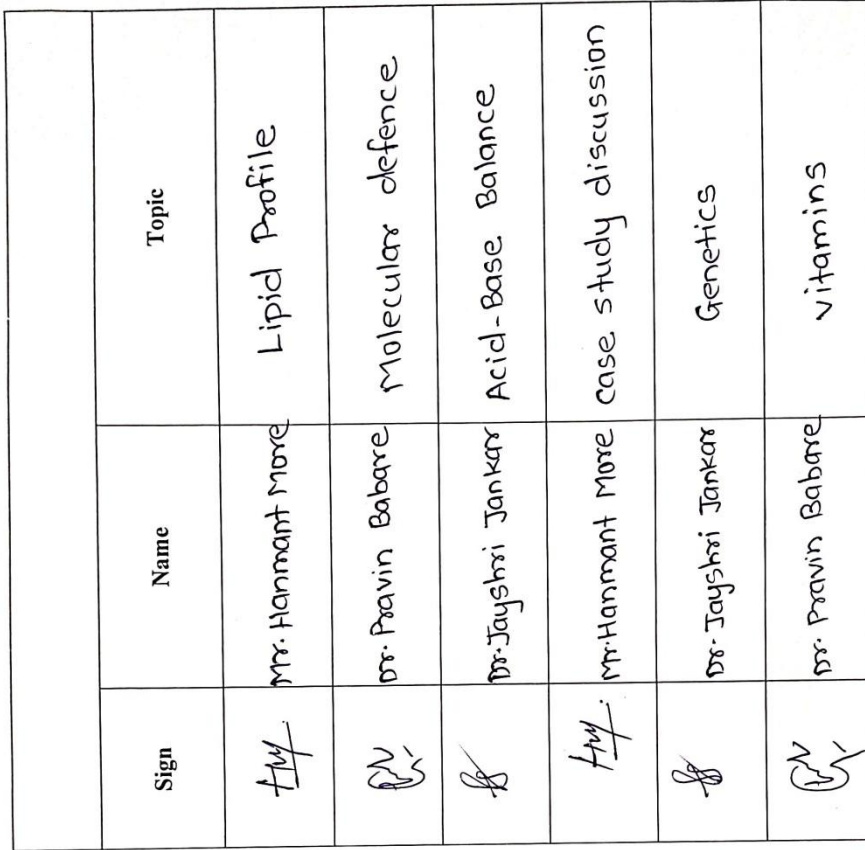 Sign Name Topic
Mr. Hanmant More Lipid Profile
Dr. Pravin Babare Molecular defence
Dr. Jayshri Jankar Acid-Base Balance
Mr. Hanmant More case study discussion
Dr. Jayshri Jankar Genetics
Dr. Pravin Babare vitamins